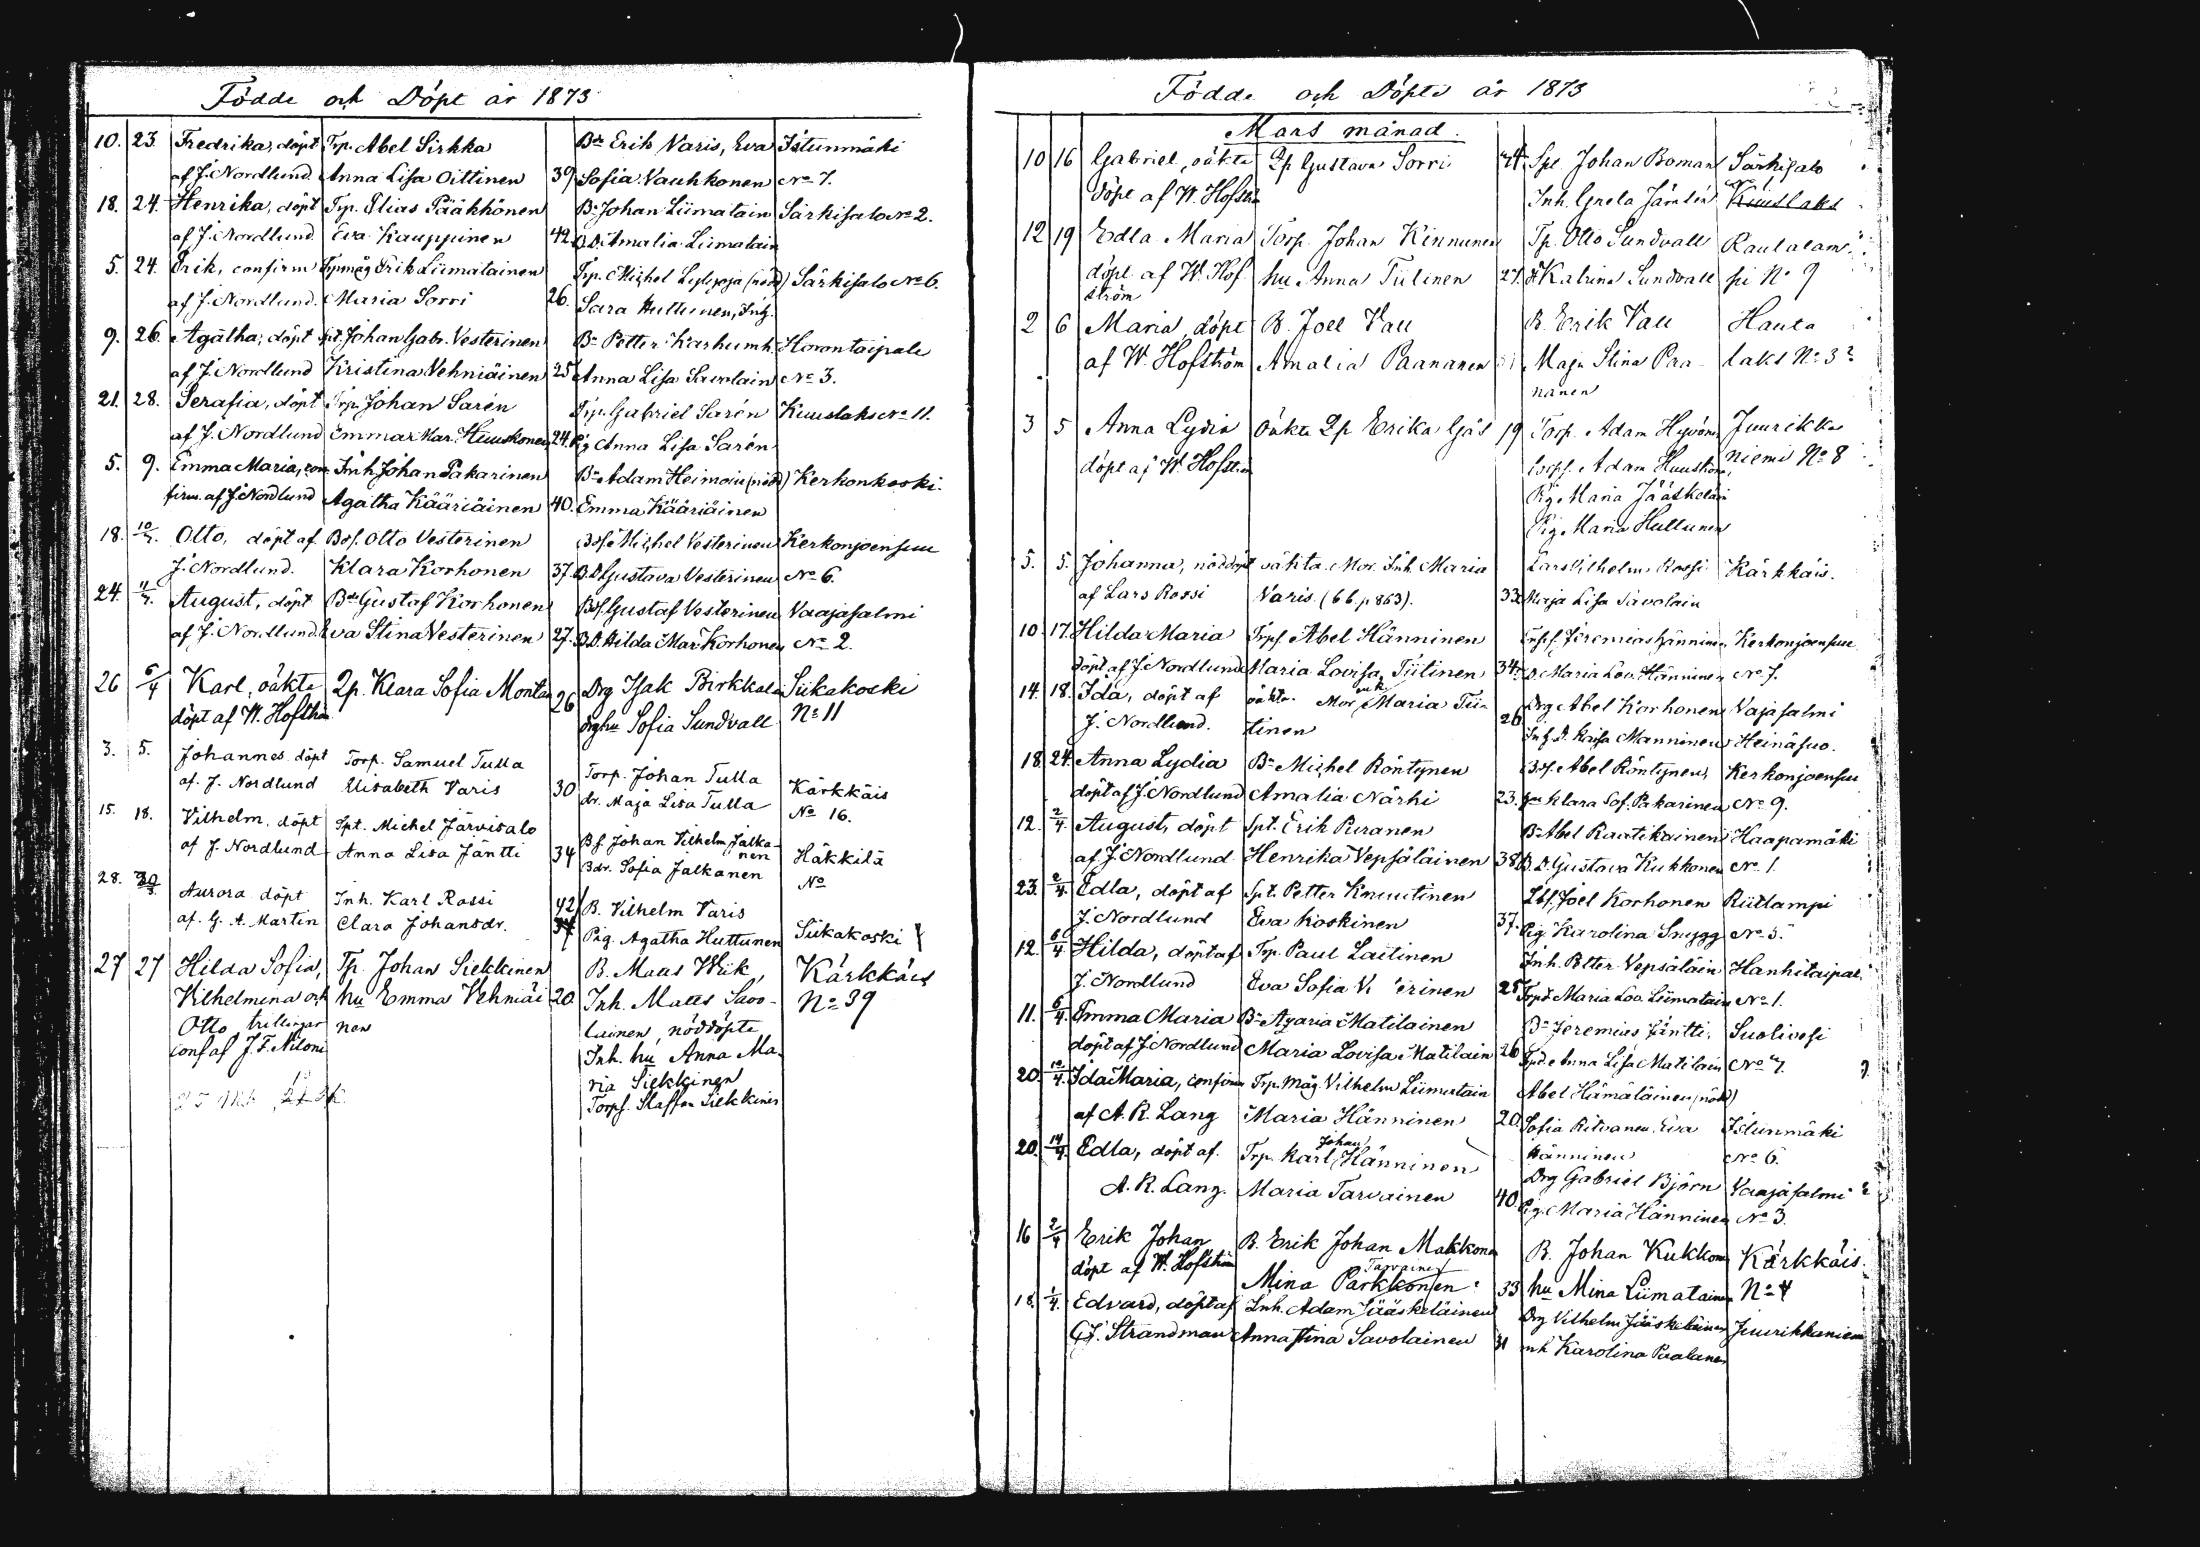 Födde och Döpt år 1873
10. 23. Fredrika, döpt Trp. Abel Sirkka Bdr Erik Varis, Eva Istunmäki
af J. Nordlund Anna Lisa Oittinen 39 Sofia Vauhkonen No 7.
18. 24. Henrika, döpt Trp. Elias Pääkkönen Bn Johan Liimatain Särkisalo No 2.
af J. Nordlund Eva Kauppinen 42. B.D. Amalia Liimatain
5. 24. Erik, confirm Trpmåg Erik Liimatainen Trp. Michel Lyly (nöd) Särkisalo No 6.
af J. Nordlund. Maria Sorri 26. Sara Huttunen, Inh.
9. 26. Agatha, döpt Spt. Johan Gabr. Vesterinen Bn Petter Karhumk. Horontaipale
af J. Nordlund Kristina Vehniäinen 25 Anna Lisa Savolain No 3.
21. 28. Serafia, döpt Trp. Johan Sarén Trp. Gabriel Sarén Kuuslaks No 11.
af J. Nordlund Emma Mar. Huuskonen 24. Pig Anna Lisa Sarén
5. 9. Emma Maria, con Inh. Johan Pakarinen Bn Adam Heimoin (nöd) Kerkonkoski.
firm. af J. Nordlund Agatha Kääriäinen 40. Emma Kääriäinen
18. 10/3. Otto, döpt af Bof. Otto Vesterinen Bof. Michel Vesterinen Kerkonjoensuu
J. Nordlund. Klara Korhonen 37. B.D. Gustava Vesterinen No 6.
24. 11/3. August, döpt Bdr Gustaf Korhonen Bof. Gustaf Vesterinen Vaajasalmi
af J. Nordlund. Eva Stina Vesterinen 27. B.D. Hilda Mar. Korhonen No 2.
26 6/4 Karl, oäkta Qp. Klara Sofia Montan 26 Drg Isak Pirkkala Siikakoski
döpt af W. Hofström drghu Sofia Sundvall No 11
3. 5. Johannes döpt Torp. Samuel Tulla Torp. Johan Tulla Kärkkäis
af. J. Nordlund Elisabeth Varis 30 dr. Maja Lisa Tulla No 16.
15. 18. Vilhelm, döpt Spt. Michel Järvisalo Bf. Johan Vilhelm Jalkanen Häkkilä
af J. Nordlund Anna Lisa Jäntti 34 Bdr. Sofia Jalkanen No
28. 30/3. Aurora döpt Inh. Karl Rossi 42 B. Vilhelm Varis
af. G. A. Martin Clara Johansdr. Pig. Agatha Huttunen Siikakoski
27 27 Hilda Sofia, Tp. Johan Siekkinen B. Maus Wiik, Kärkkäis
Vilhelmina och hu Emma Vehniäi 20. Inh. Matts Savo- No 39
Otto trillingar nen lainen, nöddöpte
conf af J. F. Niloni Inh. hu Anna Ma-
ria Siekkinen
Torpf. Staffan Siekkinen
Födde och Döpte år 1873
Mars månad.
10 16 Gabriel, oäkta Qp Gustava Sorri 24. Spt. Johan Boman Särkisalo
döpt af W. Hofström Inh. Greta Kuuslaks
12 19 Edla Maria Torp. Johan Kinnunen Tp. Otto Sundvall Rautalam-
döpt af W. Hof hu Anna Tiitinen 27. Katrina Sundvall pi No 9
ström
2 6 Maria, döpt B. Joel Vau B. Erik Vau Hanta
af W. Hofström Amalia Paananen Maja Stina Paa- laks No 3
nanen
3 5 Anna Lydia oäkta Qp Erika Gjös 19 Torp. Adam Hyvönen Juurikka
döpt af W. Hofström torpf. Adam Huuskonen, niemi No 8
Pig. Maria Jääskeläin
Pig. Maria Huttunen
5. 5. Johanna, nöddöpt oäkta. Mor. Inh. Maria Lars Vilhelm Rossi Kärkkäis.
af Lars Rossi Varis. (66. p 863). 33. Maja Lisa Savolain
10. 17. Hilda Maria Trpf Abel Hänninen Jeremias Hänninen Kerkonjoensuu
döpt af J. Nordlund Maria Lovisa Tiitinen 34. Maria Lov. Hänninen No 7.
14 18. Ida, döpt af oäkta. Mor Maria Tii- 26 Drg Abel Korhonen Vajasalmi
J. Nordlund. tinen Kaisa Manninen Heinäsuo.
18. 24. Anna Lydia Bn Michel Röntynen Bof. Abel Röntynen, Kerkonjoensuu
döpt af J. Nordlund Amalia Närhi 23. Klara Sof. Pakarinen No 9.
12. 2/4. August, döpt Spt. Erik Puranen Bn Abel Raatikainen Haapamäki
af J. Nordlund Henrika Vepsäläinen 38 B.D. Gustava Kukkonen No 1.
23. 2/4. Edla, döpt af Spt. Petter Knuutinen Joel Korhonen Riitlampi
J. Nordlund Eva Koskinen 37. Pig Karolina Snygg No 3.
12. 6/4 Hilda, döpt af Trp. Paul Laitinen Inh. Petter Vepsäläin Hanhitaipal.
J. Nordlund Eva Sofia 25 Maria Lov. Liimatain No 1.
11. 6/4. Emma Maria Bn Azaria Matilainen Bn Jeremias Jäntti, Suolivesi
döpt af J. Nordlund Maria Lovisa Matilain 26 Anna Lisa Matilain No 7.
20. 10/4. Ida Maria, confirm Trp. Måg. Vilhelm Liimatain Abel Hämäläinen (nöd)
af A. R. Lang Maria Hänninen 20. Sofia Ritvanen, Eva Istunmäki
Hänninen No 6.
20. 14/4. Edla, döpt af. Trp. Karl Johan Hänninen Drg Gabriel Björn Vaajasalmi
A. R. Lang. Maria Tarvainen 40. Pig. Maria Hänninen No 3.
16 2/4 Erik Johan B. Erik Johan Makkonen B. Johan Kukkonen Kärkkäis.
döpt af W. Hofström Mina Parkkonen Tarvainen 33 hu Mina Liimatainen No 4
18. 1/4. Edvard, döpt af Inh. Adam Jääskeläinen Drg Vilhelm Jääskeläinen Juurikkaniemi
G. J. Strandman Anna Stina Savolainen 31 Karolina Paalanen